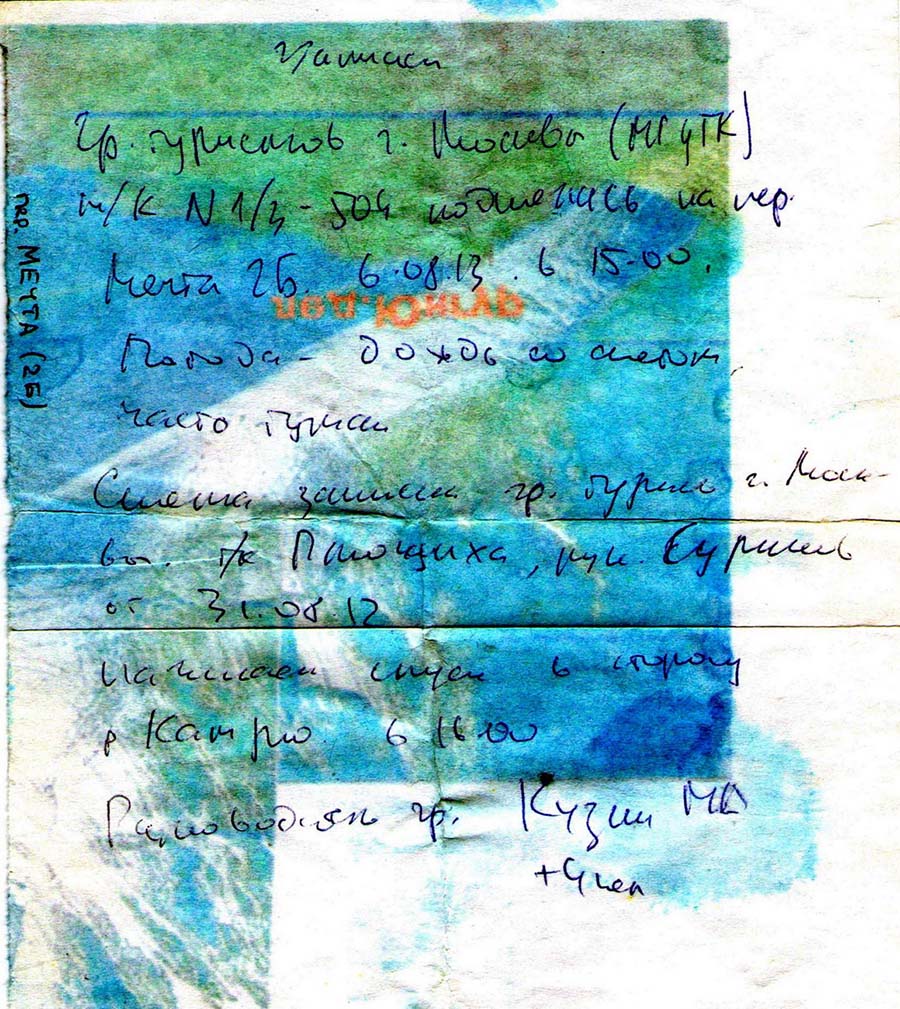 Записка
Гр. туристов г. Москвы (МГЦТК)
м/к N 1/3-504 поднялись на пер.
Мечта 2Б. 6.08.13. в 15-00.
Погода - дождь со снегом,
часто туман
Снята записка гр. турист г. Моск-
вы. т/к Плющиха, рук.
от 31.08.12
Начинаем спуск в сторону
р 6 16.00
Руководитель гр. Кузин
+ 4 чел
пер. МЕЧТА (2Б)